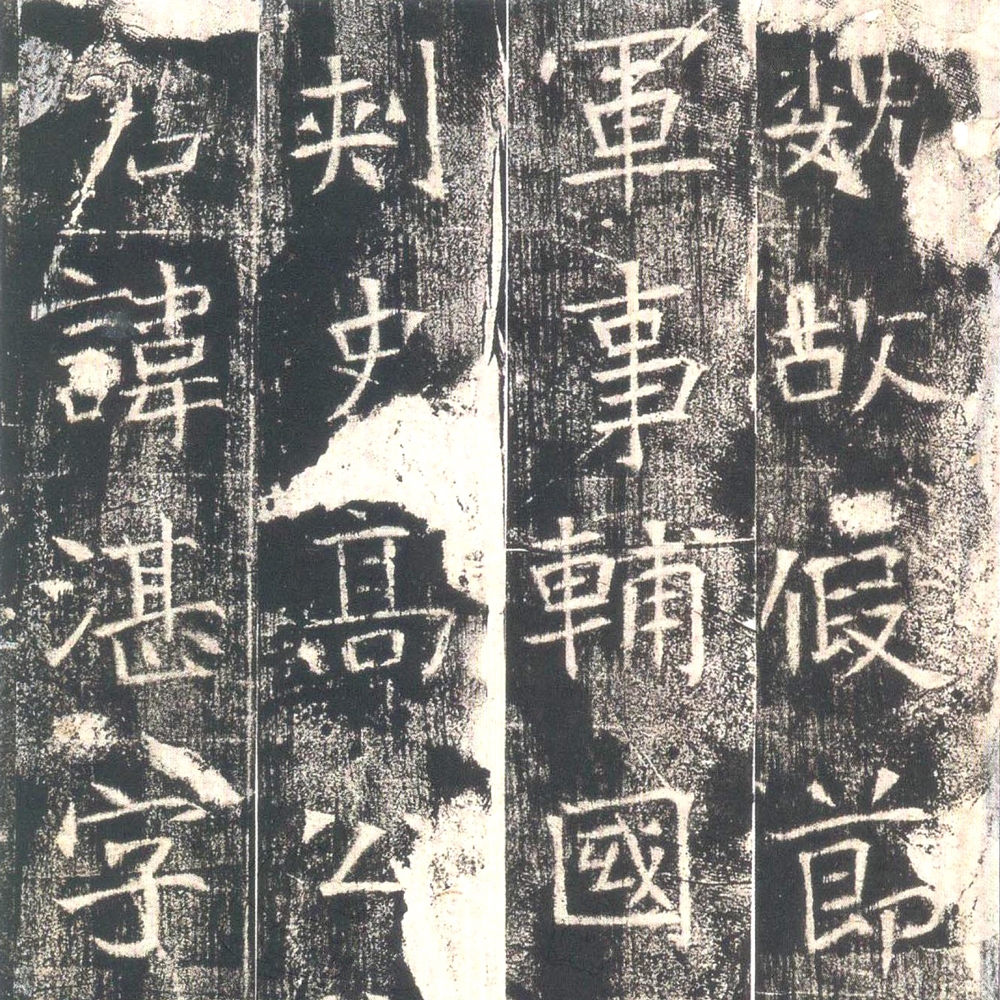 魏故假節
軍事輔國
刾史髙公
君諱湛字